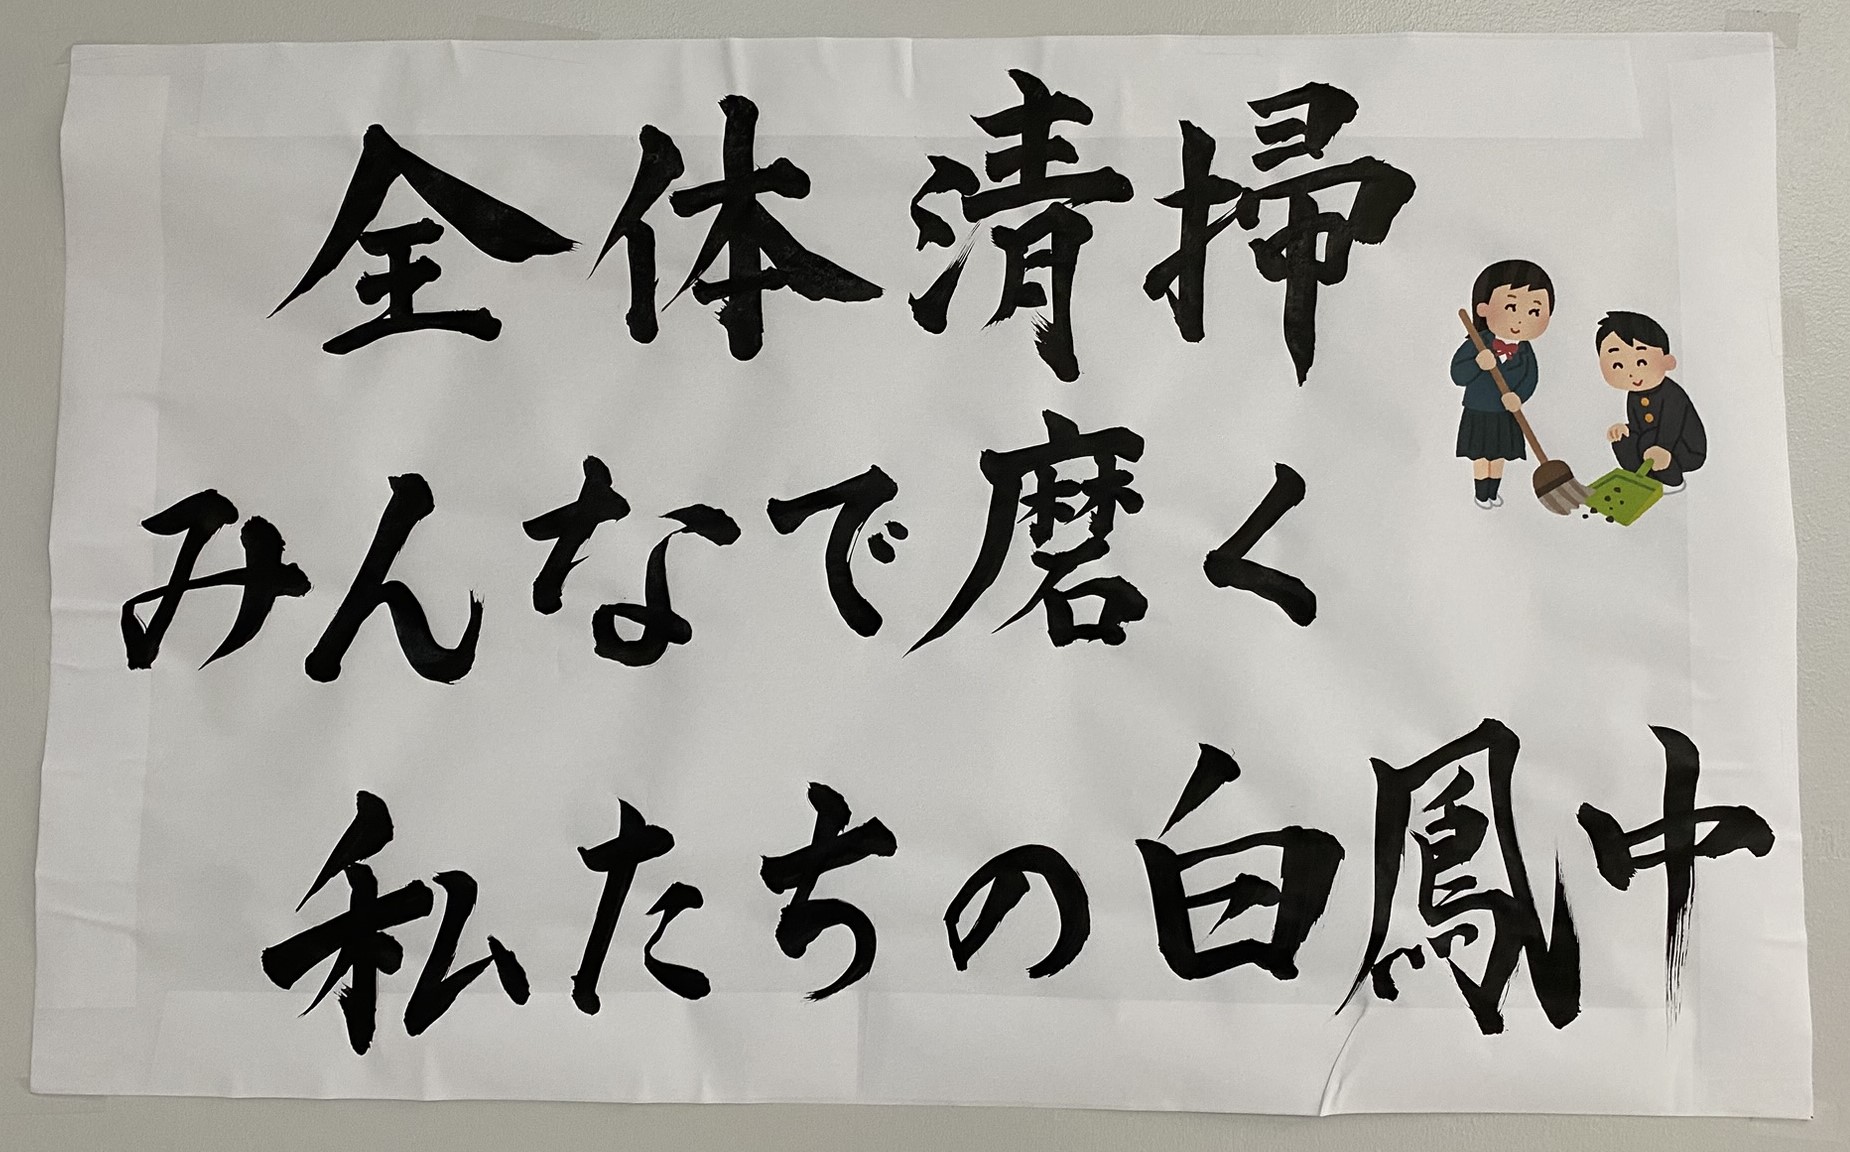 全体清掃
みんなで磨く
私たちの白鳳中